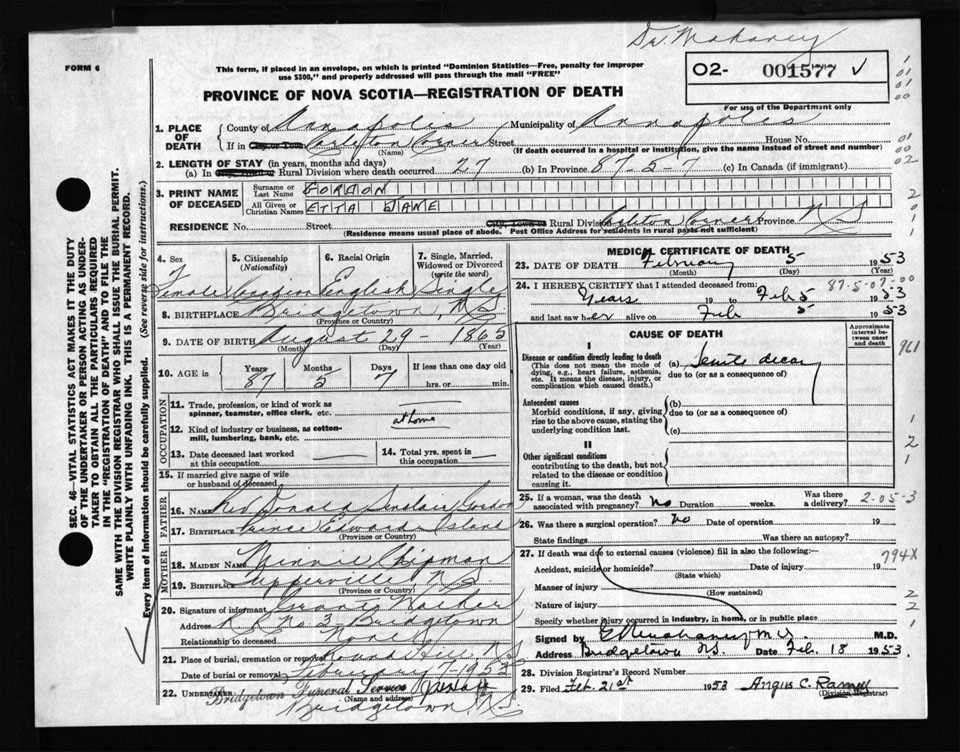 Dr. Mahaney
FORM 6
This form, if placed in an envelope, on which is printed "Dominion Statistics—Free, penalty for improper
use $300," and properly addressed will pass through the mail "FREE"
O2- 001577
For use of the Department only
PROVINCE OF NOVA SCOTIA—REGISTRATION OF DEATH
SEC. 46—VITAL STATISTICS ACT MAKES IT THE DUTY
OF THE UNDERTAKER OR PERSON ACTING AS UNDER-
TAKER TO OBTAIN ALL THE PARTICULARS REQUIRED
IN THE "REGISTRATION OF DEATH" AND TO FILE THE
SAME WITH THE DIVISION REGISTRAR WHO SHALL ISSUE THE BURIAL PERMIT.
WRITE PLAINLY WITH UNFADING INK. THIS IS A PERMANENT RECORD.
Every item of information should be carefully supplied. (See reverse side for instructions.)
1. PLACE OF DEATH
County of Annapolis Municipality of Annapolis
If in City or Town Corner Street House No.
(Name) (If death occurred in a hospital or institution, give the name instead of street and number)
2. LENGTH OF STAY (in years, months and days)
(a) In Rural Division where death occurred 27 (b) In Province 87-5-7 (c) In Canada (if immigrant)
3. PRINT NAME OF DECEASED
Surname or Last Name GORDON
All Given or Christian Names ETTA JANE
RESIDENCE No. Street City, Town or Rural Division Corner Province N S
(Residence means usual place of abode. Post Office Address for residents in rural parts not sufficient)
4. Sex Female
5. Citizenship (Nationality) Canadian
6. Racial Origin English
7. Single, Married, Widowed or Divorced (write the word) Single
8. BIRTHPLACE Bridgetown, N.S.
(Province or Country)
9. DATE OF BIRTH August 29 - 1865
(Month) (Day) (Year)
10. AGE in Years 87 Months 5 Days 7 If less than one day old hrs. or min.
OCCUPATION
11. Trade, profession, or kind of work as
spinner, teamster, office clerk, etc.
at home
12. Kind of industry or business, as cotton-
mill, lumbering, bank, etc.
13. Date deceased last worked at this occupation
14. Total yrs. spent in this occupation
15. If married give name of wife or husband of deceased
FATHER
16. Name Rev Donald Sinclair Gordon
17. Birthplace Prince Edward Island
(Province or Country)
MOTHER
18. Maiden Name Minnie Chipman
19. Birthplace Tupperville N S
(Province or Country)
20. Signature of informant Grant Walker
Address R R No 3 Bridgetown
Relationship to deceased None
21. Place of burial, cremation or removal Round Hill, N S
Date of burial or removal February 7 1953
22. UNDERTAKER Bridgetown Funeral Service
(Name and address)
Bridgetown, N.S.
MEDICAL CERTIFICATE OF DEATH
23. DATE OF DEATH February 5 1953
(Month) (Day) (Year)
24. I HEREBY CERTIFY that I attended deceased from: 87-5-07
Years 19 to Feb 5 1953
and last saw her alive on Feb 5 1953
CAUSE OF DEATH
Approximate interval between onset and death
I
Disease or condition directly leading to death
(This does not mean the mode of
dying, e.g., heart failure, asthenia,
etc. It means the disease, injury, or
complication which caused death.)
(a) Senile decay
due to (or as a consequence of)
Antecedent causes
Morbid conditions, if any, giving
rise to the above cause, stating the
underlying condition last.
(b)
due to (or as a consequence of)
(c)
II
Other significant conditions
contributing to the death, but not
related to the disease or condition
causing it.
25. If a woman, was the death associated with pregnancy? No Duration weeks. Was there a delivery? 2-05-3
26. Was there a surgical operation? No Date of operation 19
State findings Was there an autopsy?
27. If death was due to external causes (violence) fill in also the following: 794X
Accident, suicide or homicide? Date of injury 19
(State which)
Manner of injury
(How sustained)
Nature of injury
Specify whether injury occurred in industry, in home, or in public place
Signed by M.D.
Address Bridgetown N.S. Date Feb. 18 1953.
28. Division Registrar's Record Number
29. Filed Feb. 21st 1953 Angus C. Ramey
(Division Registrar)